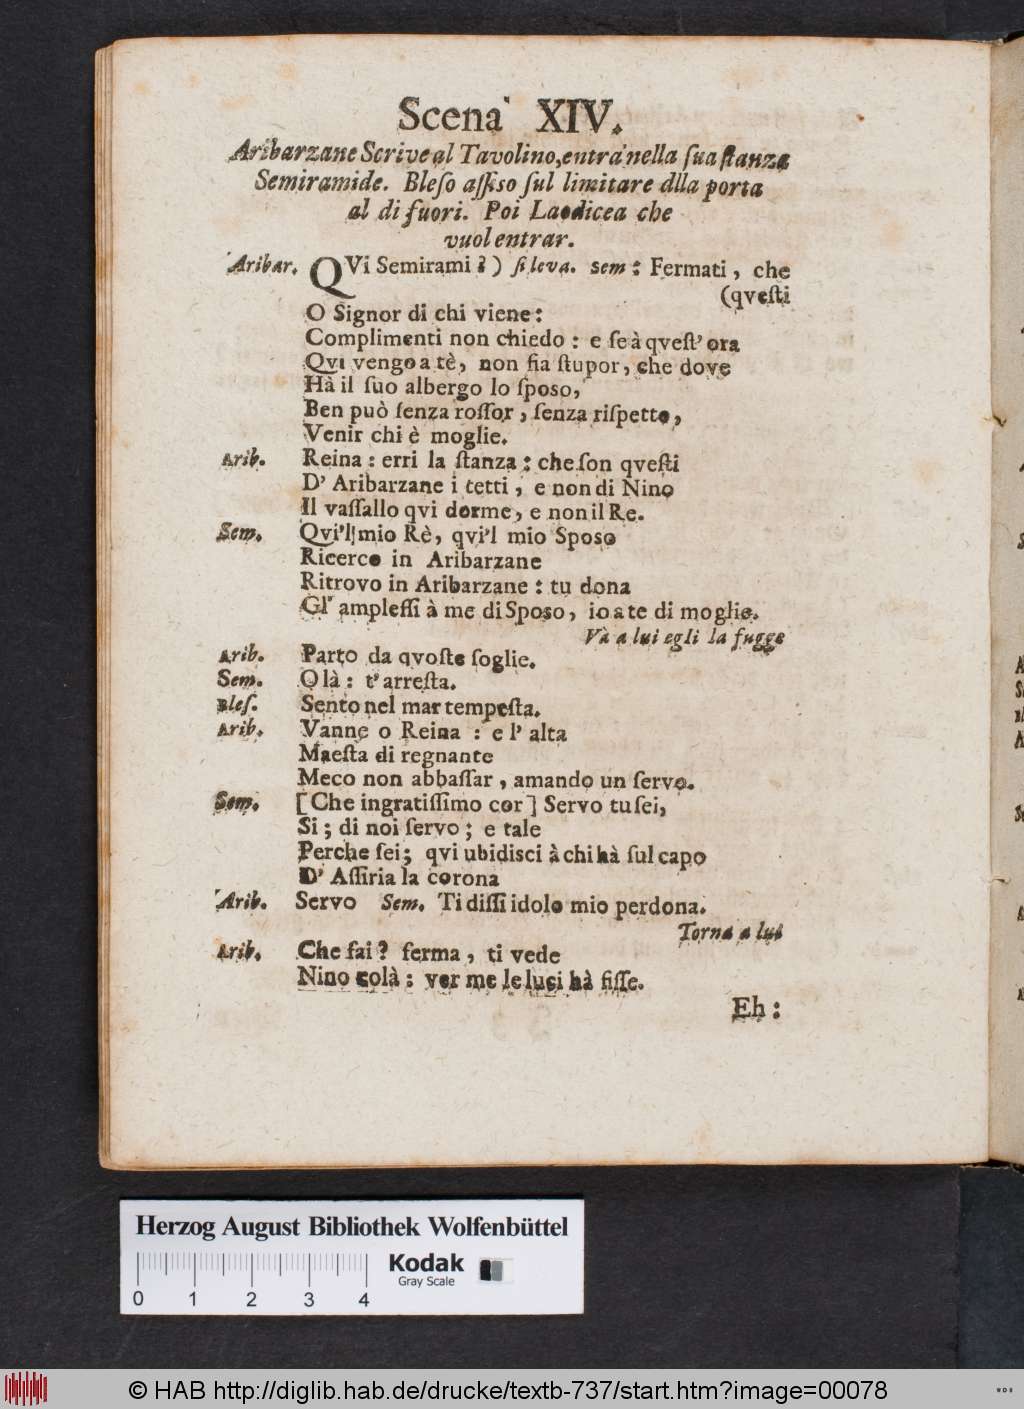 Scena XIV.
Aribarzane Scrive al Tavolino, entra nella ſua ſtanza
Semiramide. Bleſo aſſiso ſul limitare dlla porta
al di fuori. Poi Laodicea che
vuol entrar.
Aribar. QVi Semirami ? ) ſi leva. sem : Fermati , che
(qveſti
O Signor di chi viene :
Complimenti non chiedo : e ſe à qveſt' ora
Qvi vengo a tè, non fia ſtupor, che dove
Hà il ſuo albergo lo ſposo,
Ben può ſenza roſſor , ſenza riſpetto,
Venir chi è moglie.
Arib. Reina : erri la ſtanza : che ſon qveſti
D' Aribarzane i tetti , e non di Nino
Il vaſſallo qvi dorme, e non il Re.
Sem. Qvi'l mio Rè, qvi'l mio Sposo
Ricerco in Aribarzane
Ritrovo in Aribarzane : tu dona
Gl' ampleſſi à me di Sposo, io a te di moglie.
Và a lui egli la fugge
Arib. Parto da qvoſte ſoglie.
Sem. O là : t'arreſta.
Bleſ. Sento nel mar tempeſta.
Arib. Vanne o Reina : e l' alta
Maeſta di regnante
Meco non abbaſſar , amando un ſervo.
Sem. [Che ingratiſſimo cor] Servo tu ſei,
Si ; di noi ſervo ; e tale
Perche ſei ; qvi ubidisci à chi hà ſul capo
D' Aſſiria la corona
Arib. Servo Sem. Ti diſſi idolo mio perdona.
Torna a lui
Arib. Che fai ? ferma , ti vede
Nino colà : ver me le luci hà fiſſe.
Eh :
Herzog August Bibliothek Wolfenbüttel
Kodak
Gray Scale
0 1 2 3 4
© HAB http://diglib.hab.de/drucke/textb-737/start.htm?image=00078